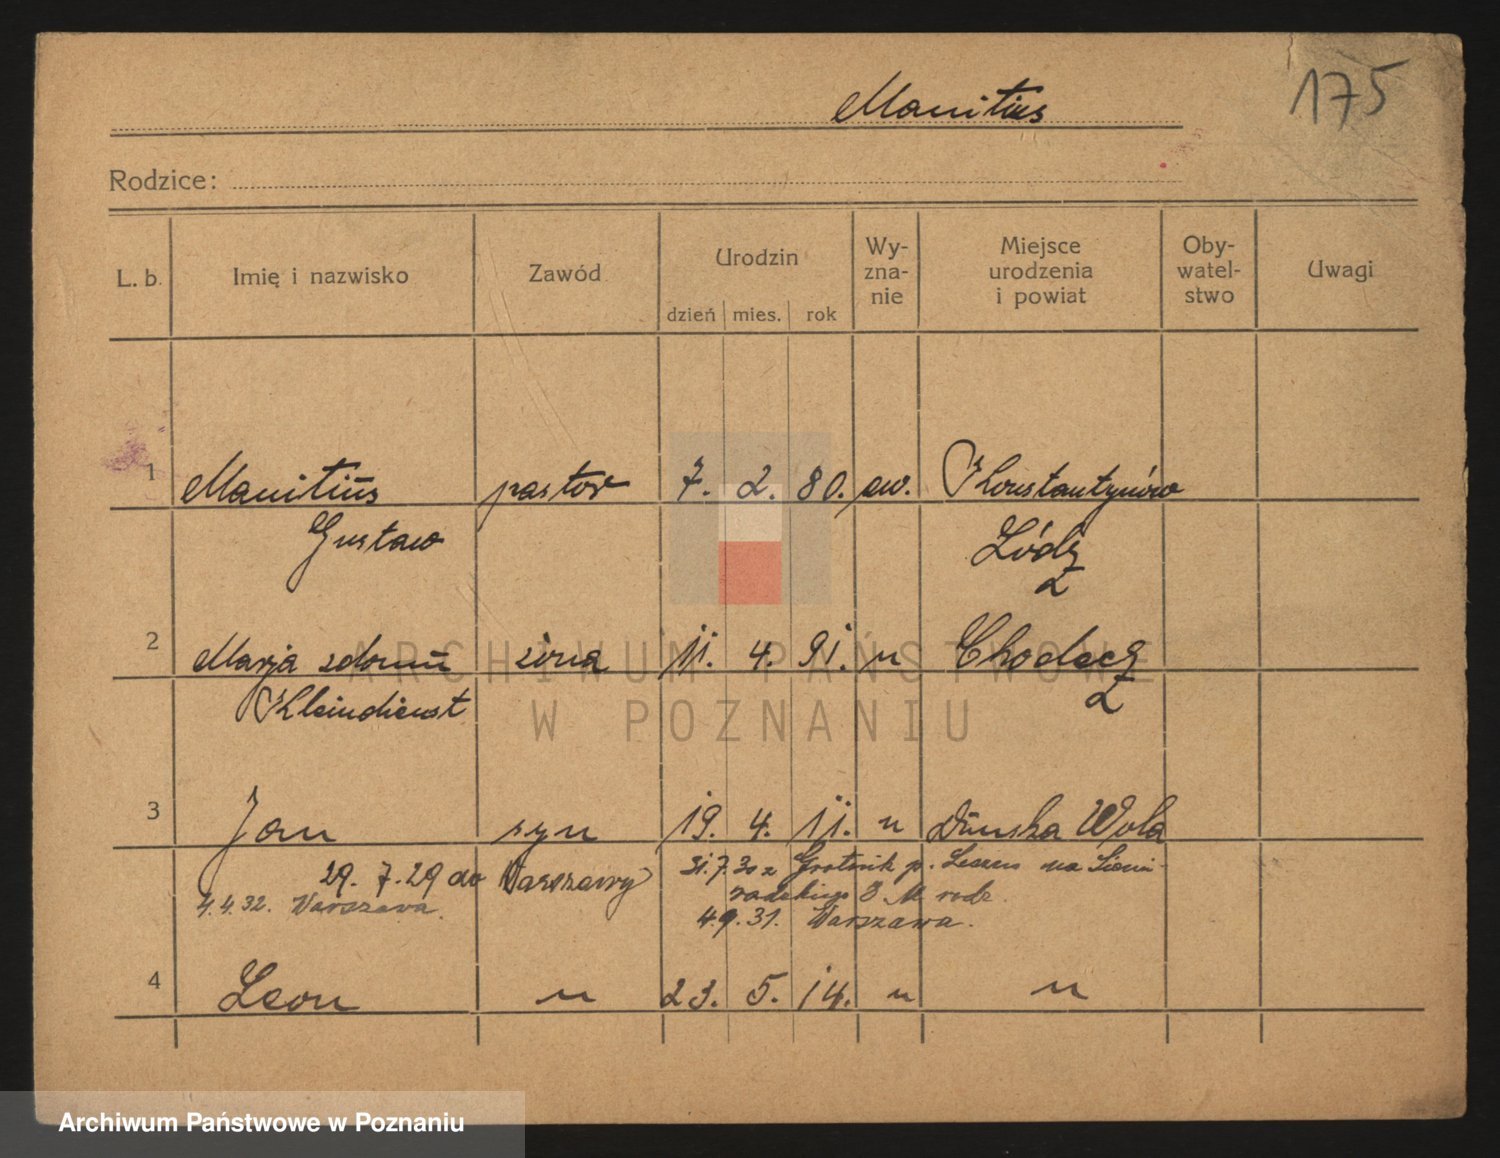 Manitius
175
Rodzice:
L. b. Imię i nazwisko Zawód Urodzin dzień mies. rok Wy-zna-nie Miejsce urodzenia i powiat Oby-watel-stwo Uwagi
1 Manitius pastor 7. 2. 80. ew. Konstantynów
Gustaw Łódź
2 Marja zdomu żona 11. 4. 91. " Chodecz
Kleindienst
3 Jan syn 19. 4. 11. " Zduńska Wola
29. 7. 29 do Warszawy 31.7.30 z Grotnik p. Leszno
4.4.32. Warszawa. 4.9.31. Warszawa.
4 Leon " 23. 5. 14. " "
ARCHIWUM PAŃSTWOWE
W POZNANIU
Archiwum Państwowe w Poznaniu